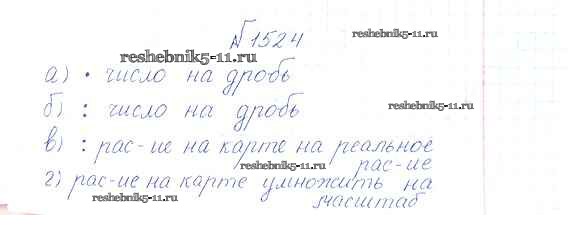 №1524
reshebnik5-11.ru
reshebnik5-11.ru
а) · число на дробь
б) : число на дробь
reshebnik5-11.ru
в) : рас-ие на карте на реальное
рас-ие
reshebnik5-11.ru
г) рас-ие на карте умножить на
reshebnik5-11.ru
масштаб